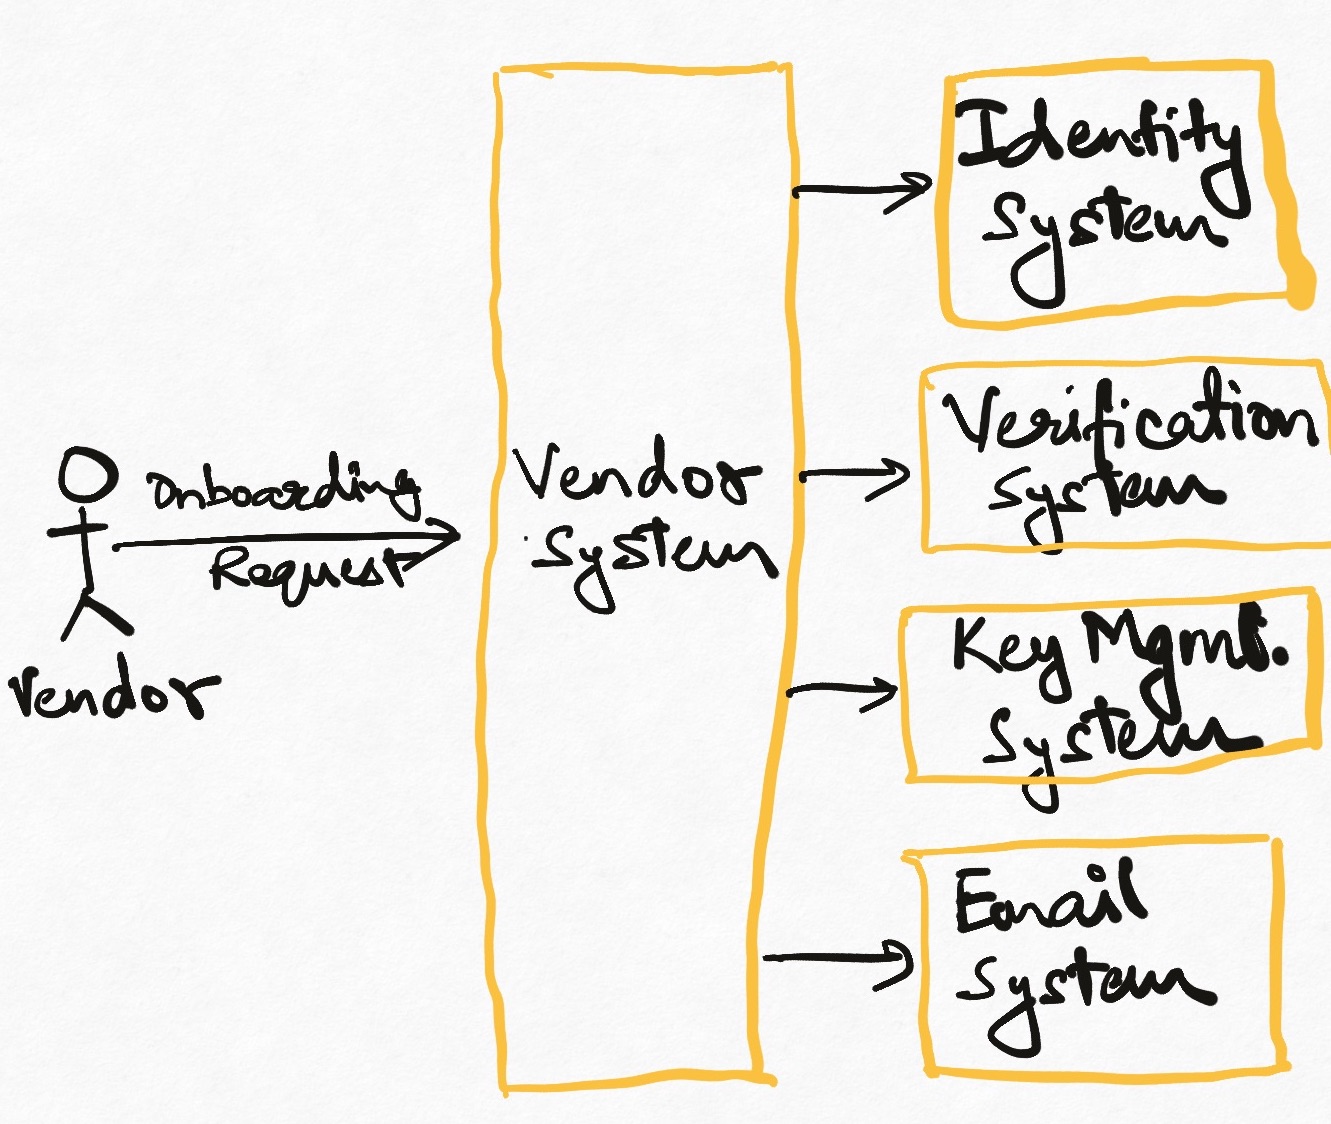 Onboarding
Request
Vendor
Vendor
System
Identity
System
Verification
System
Key Mgmt.
System
Email
System